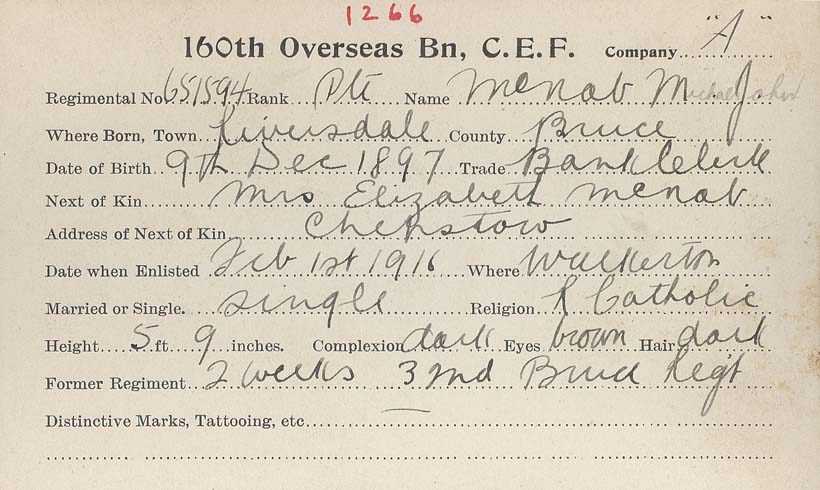 1266
160th Overseas Bn, C.E.F. Company "A"
Regimental No 651594 Rank Pte Name McNab Michael John
Where Born, Town Riversdale County Bruce
Date of Birth 9th Dec 1897 Trade Bank Clerk
Next of Kin Mrs Elizabeth McNab
Address of Next of Kin Chepstow
Date when Enlisted Feb 1st 1916 Where Walkerton
Married or Single. Single Religion R Catholic
Height 5 ft 9 inches. Complexion dark Eyes brown Hair dark
Former Regiment 2 weeks 32nd Bruce Regt
Distinctive Marks, Tattooing, etc —